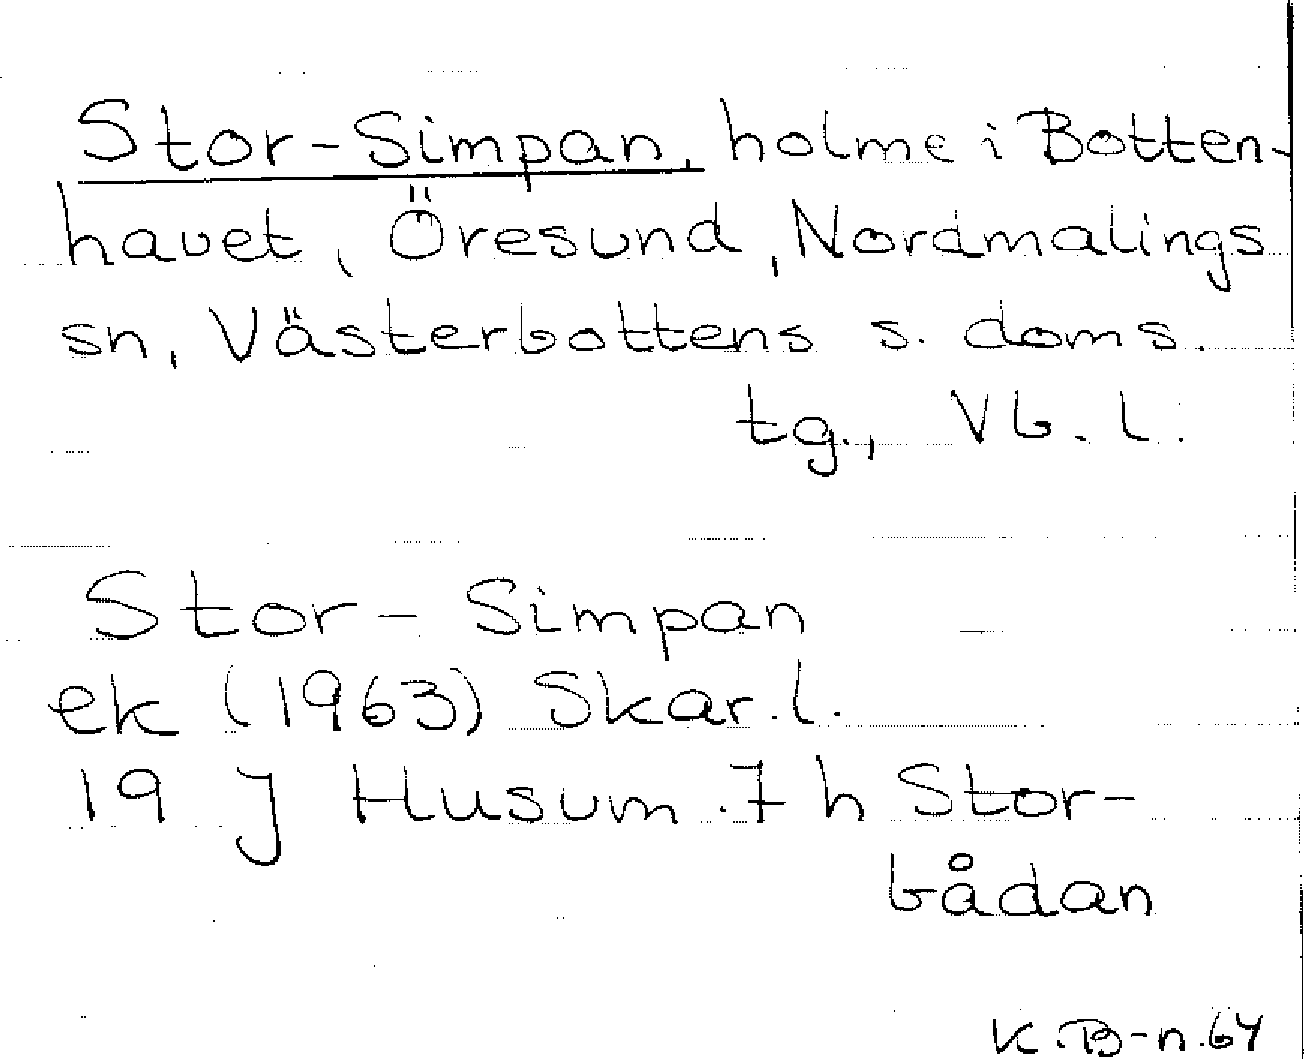 Stor-Simpan, holme i Botten-
havet, Öresund, Nordmalings
sn, Västerbottens s. doms.
tg., Vb. l.
Stor-Simpan
ek (1963) Skar. l.
19 J Husum. 7 h Stor-
bådan
K. B-n. 64